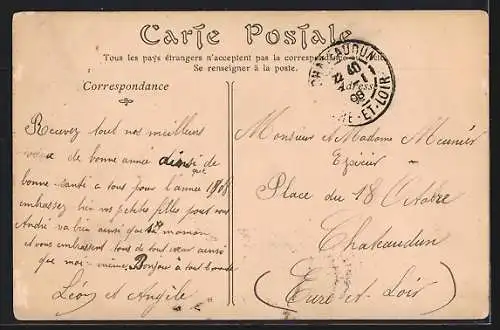 Carte Postale
Tous les pays étrangers n'acceptent pas la correspondance au
Se renseigner à la poste.
CHATEAUDUN
EURE-ET-LOIR
Correspondance
Adresse
Recevez tout nos meilleurs
vœux de bonne année ainsi que
bonne santé a tous pour l'année 1908
embrassez bien vos petites filles pour nous
André va bien ainsi que sa maman
et vous embrassent tous de tout cœur ainsi
que moi-même. Bonjour à tout le monde
Léon et Angèle
Monsieur et Madame Meunier
Epicier
Place du 18 Octobre
Chateaudun
(Eure et Loir)